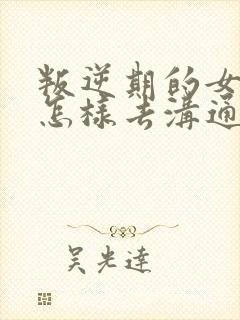 叛逆期的女
怎樣去溝通
吳光達